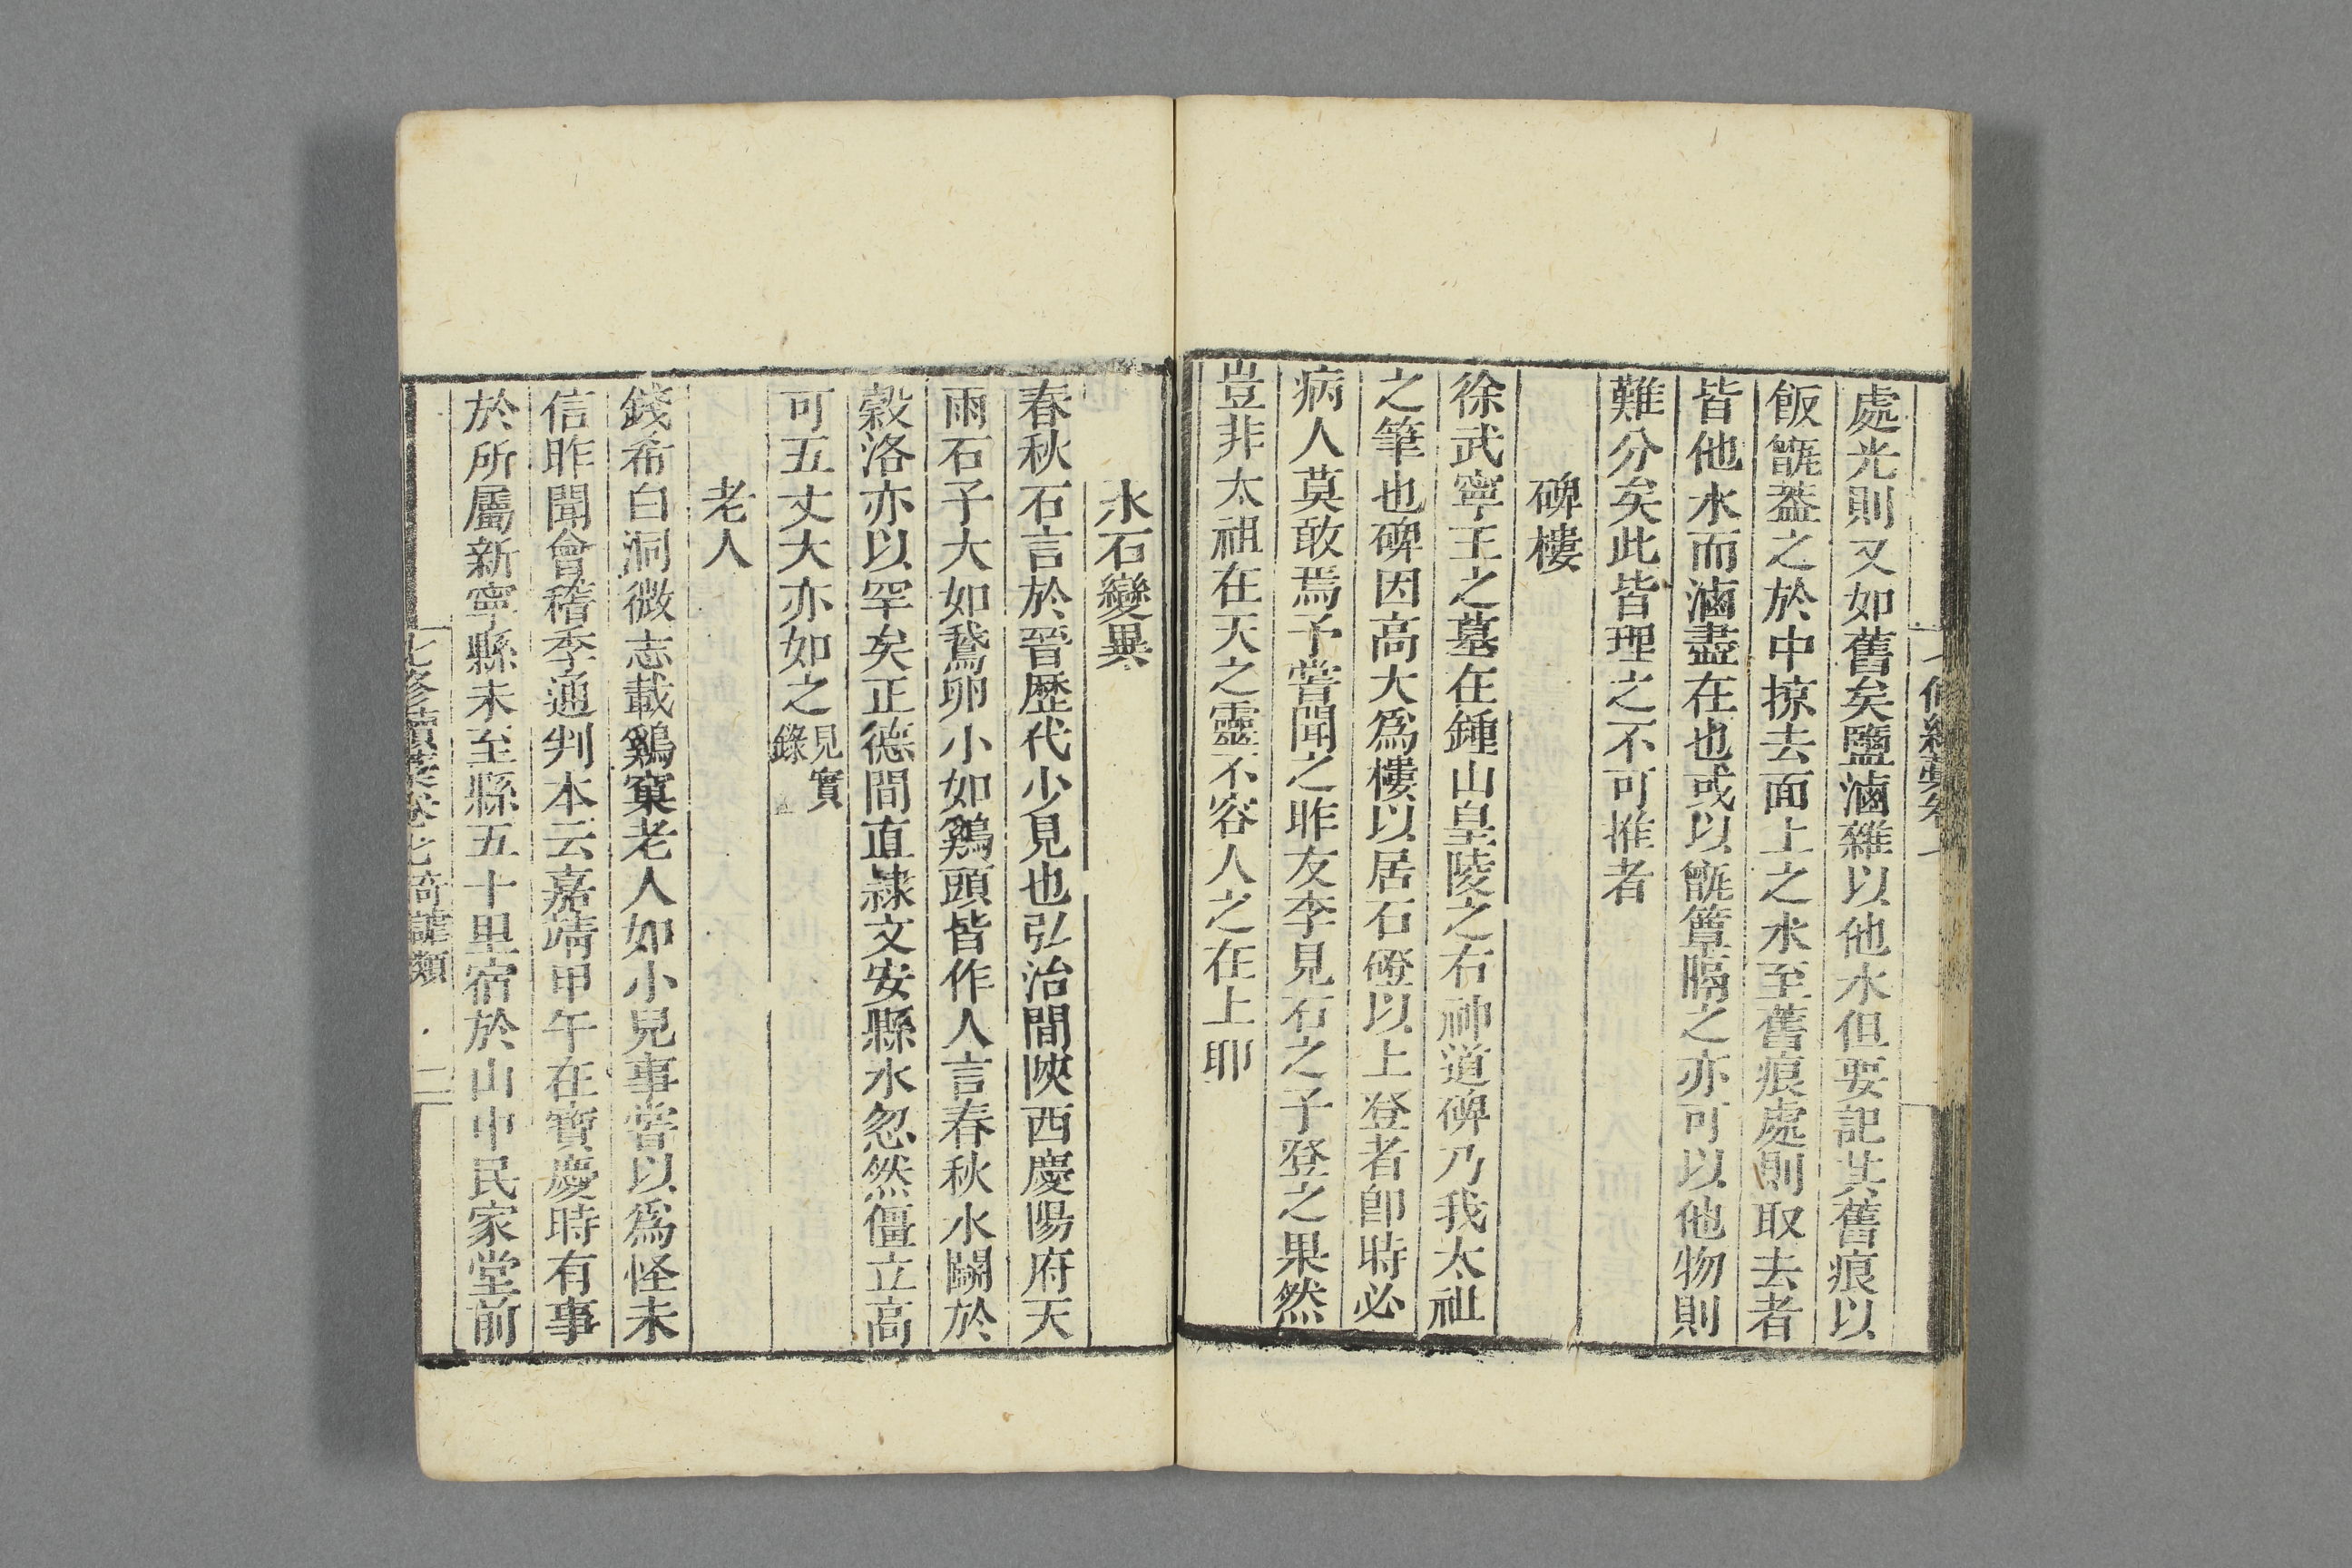 處光則又如舊矣鹽滷雜以他水但要記其舊痕以
飯甑葢之於中掠去面上之水至舊痕處則取去者
皆他水而滷盡在也或以甑簟隔之亦可以他物則
難分矣此皆理之不可推者
碑樓
徐武寧王之墓在鍾山皇陵之右神道碑乃我太祖
之筆也碑因高大爲樓以居石磴以上登者卽時必
病人莫敢焉予嘗聞之昨友李見石之子登之果然
豈非太祖在天之靈不容人之在上耶
水石變異
春秋石言於晉歷代少見也弘治間陝西慶陽府天
雨石子大如鵞卵小如鷄頭皆作人言春秋水鬭於
穀洛亦以罕矣正德間直隸文安縣水忽然僵立高
可五丈大亦如之見實錄
老人
錢希白洞微志載鷄窠老人如小兒事嘗以爲怪未
信昨聞會稽季通判本云嘉靖甲午在寶慶時有事
於所屬新寧縣未至縣五十里宿於山中民家堂前
七修續藁卷七奇謔類 二